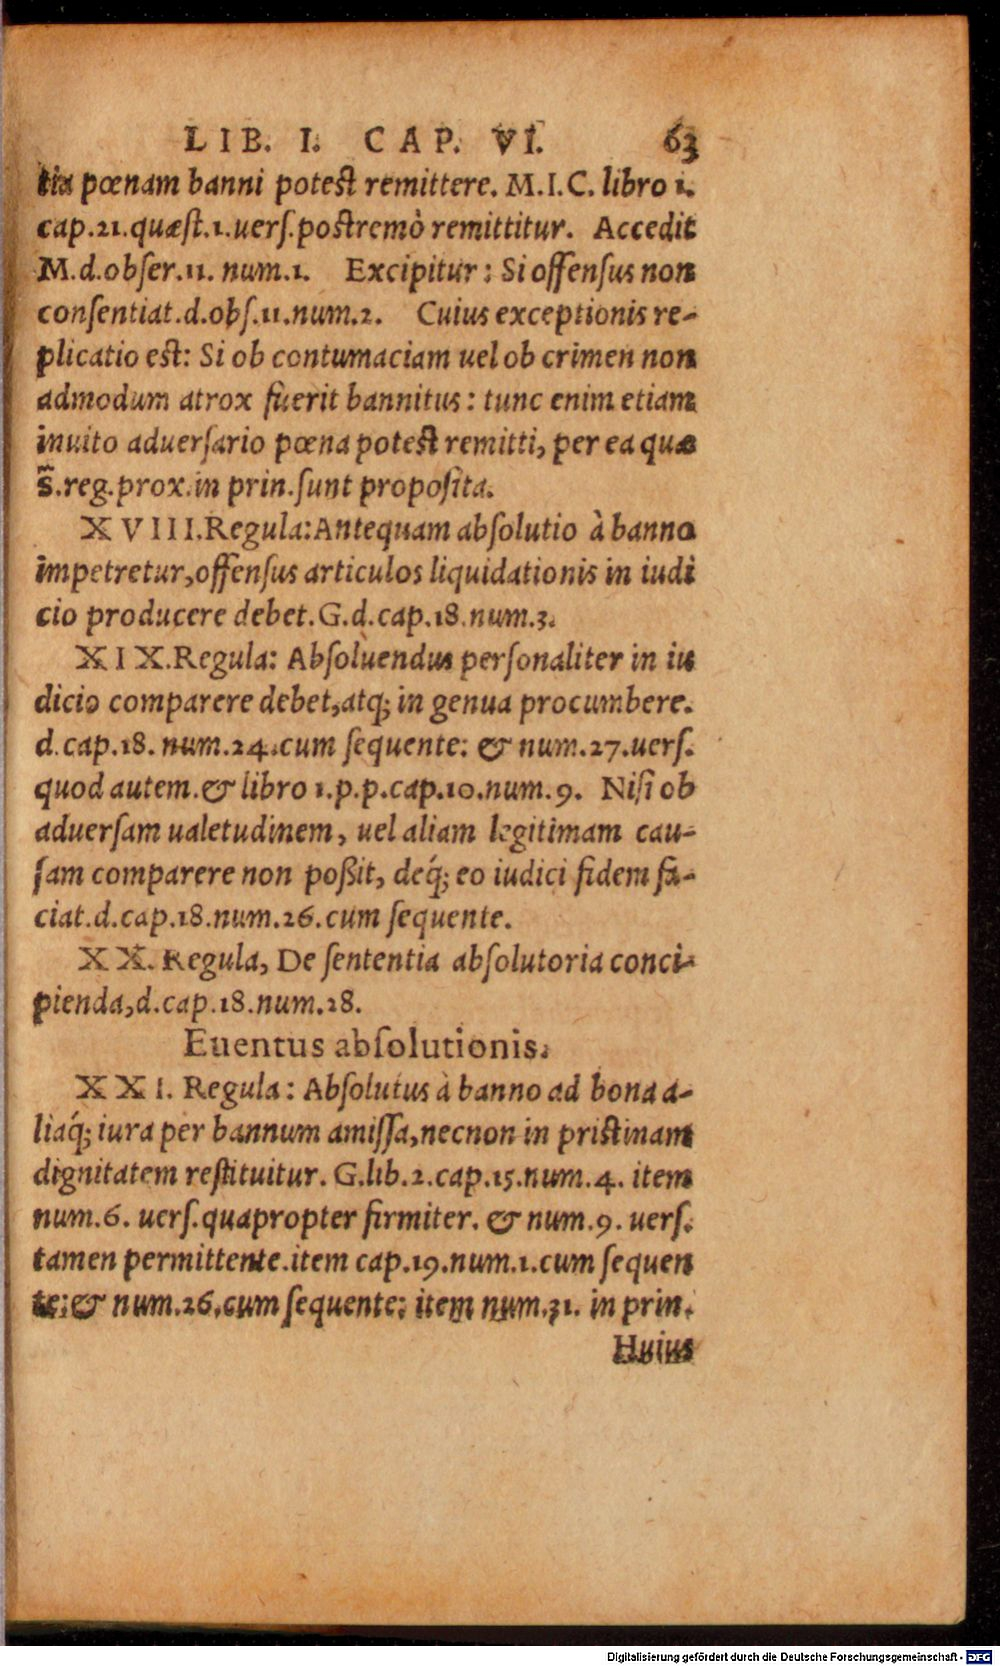 LIB. I. CAP. VI. 63
tia pœnam banni potest remittere. M.I.C. libro 1.
cap.21.quæst.1.uerſ.postremò remittitur. Accedit
M.d.obſer.11. num.1. Excipitur: Si offenſus non
conſentiat.d.obſ.11.num.2. Cuius exceptionis re-
plicatio est: Si ob contumaciam uel ob crimen non
admodum atrox fuerit bannitus: tunc enim etiam
inuito aduerſario pœna potest remitti, per ea quæ
s̃.reg.prox.in prin.ſunt propoſita.
XVIII.Regula:Antequam abſolutio à banno
impetretur,offenſus articulos liquidationis in iudi
cio producere debet.G.d.cap.18.num.3.
XIX.Regula: Abſoluendus perſonaliter in iu
dicio comparere debet,atq; in genua procumbere.
d.cap.18. num.24.cum ſequente: & num.27.uerſ.
quod autem.& libro 1.p.p.cap.10.num.9. Niſi ob
aduerſam ualetudinem, uel aliam legitimam cau-
ſam comparere non poßit, deq́; eo iudici fidem fa-
ciat.d.cap.18.num.26.cum ſequente.
XX. Regula, De ſententia abſolutoria conci-
pienda,d.cap.18.num.28.
Euentus abſolutionis.
XXI. Regula: Abſolutus à banno ad bona a-
liaq́; iura per bannum amiſſa,necnon in pristinam
dignitatem restituitur. G.lib.2.cap.15.num.4. item
num.6. uerſ.quapropter firmiter. & num.9. uerſ.
tamen permittente.item cap.19.num.1.cum ſequen
te:& num.26.cum ſequente: item num.31. in prin.
Huius
Digitalisierung gefördert durch die Deutsche Forschungsgemeinschaft - DFG